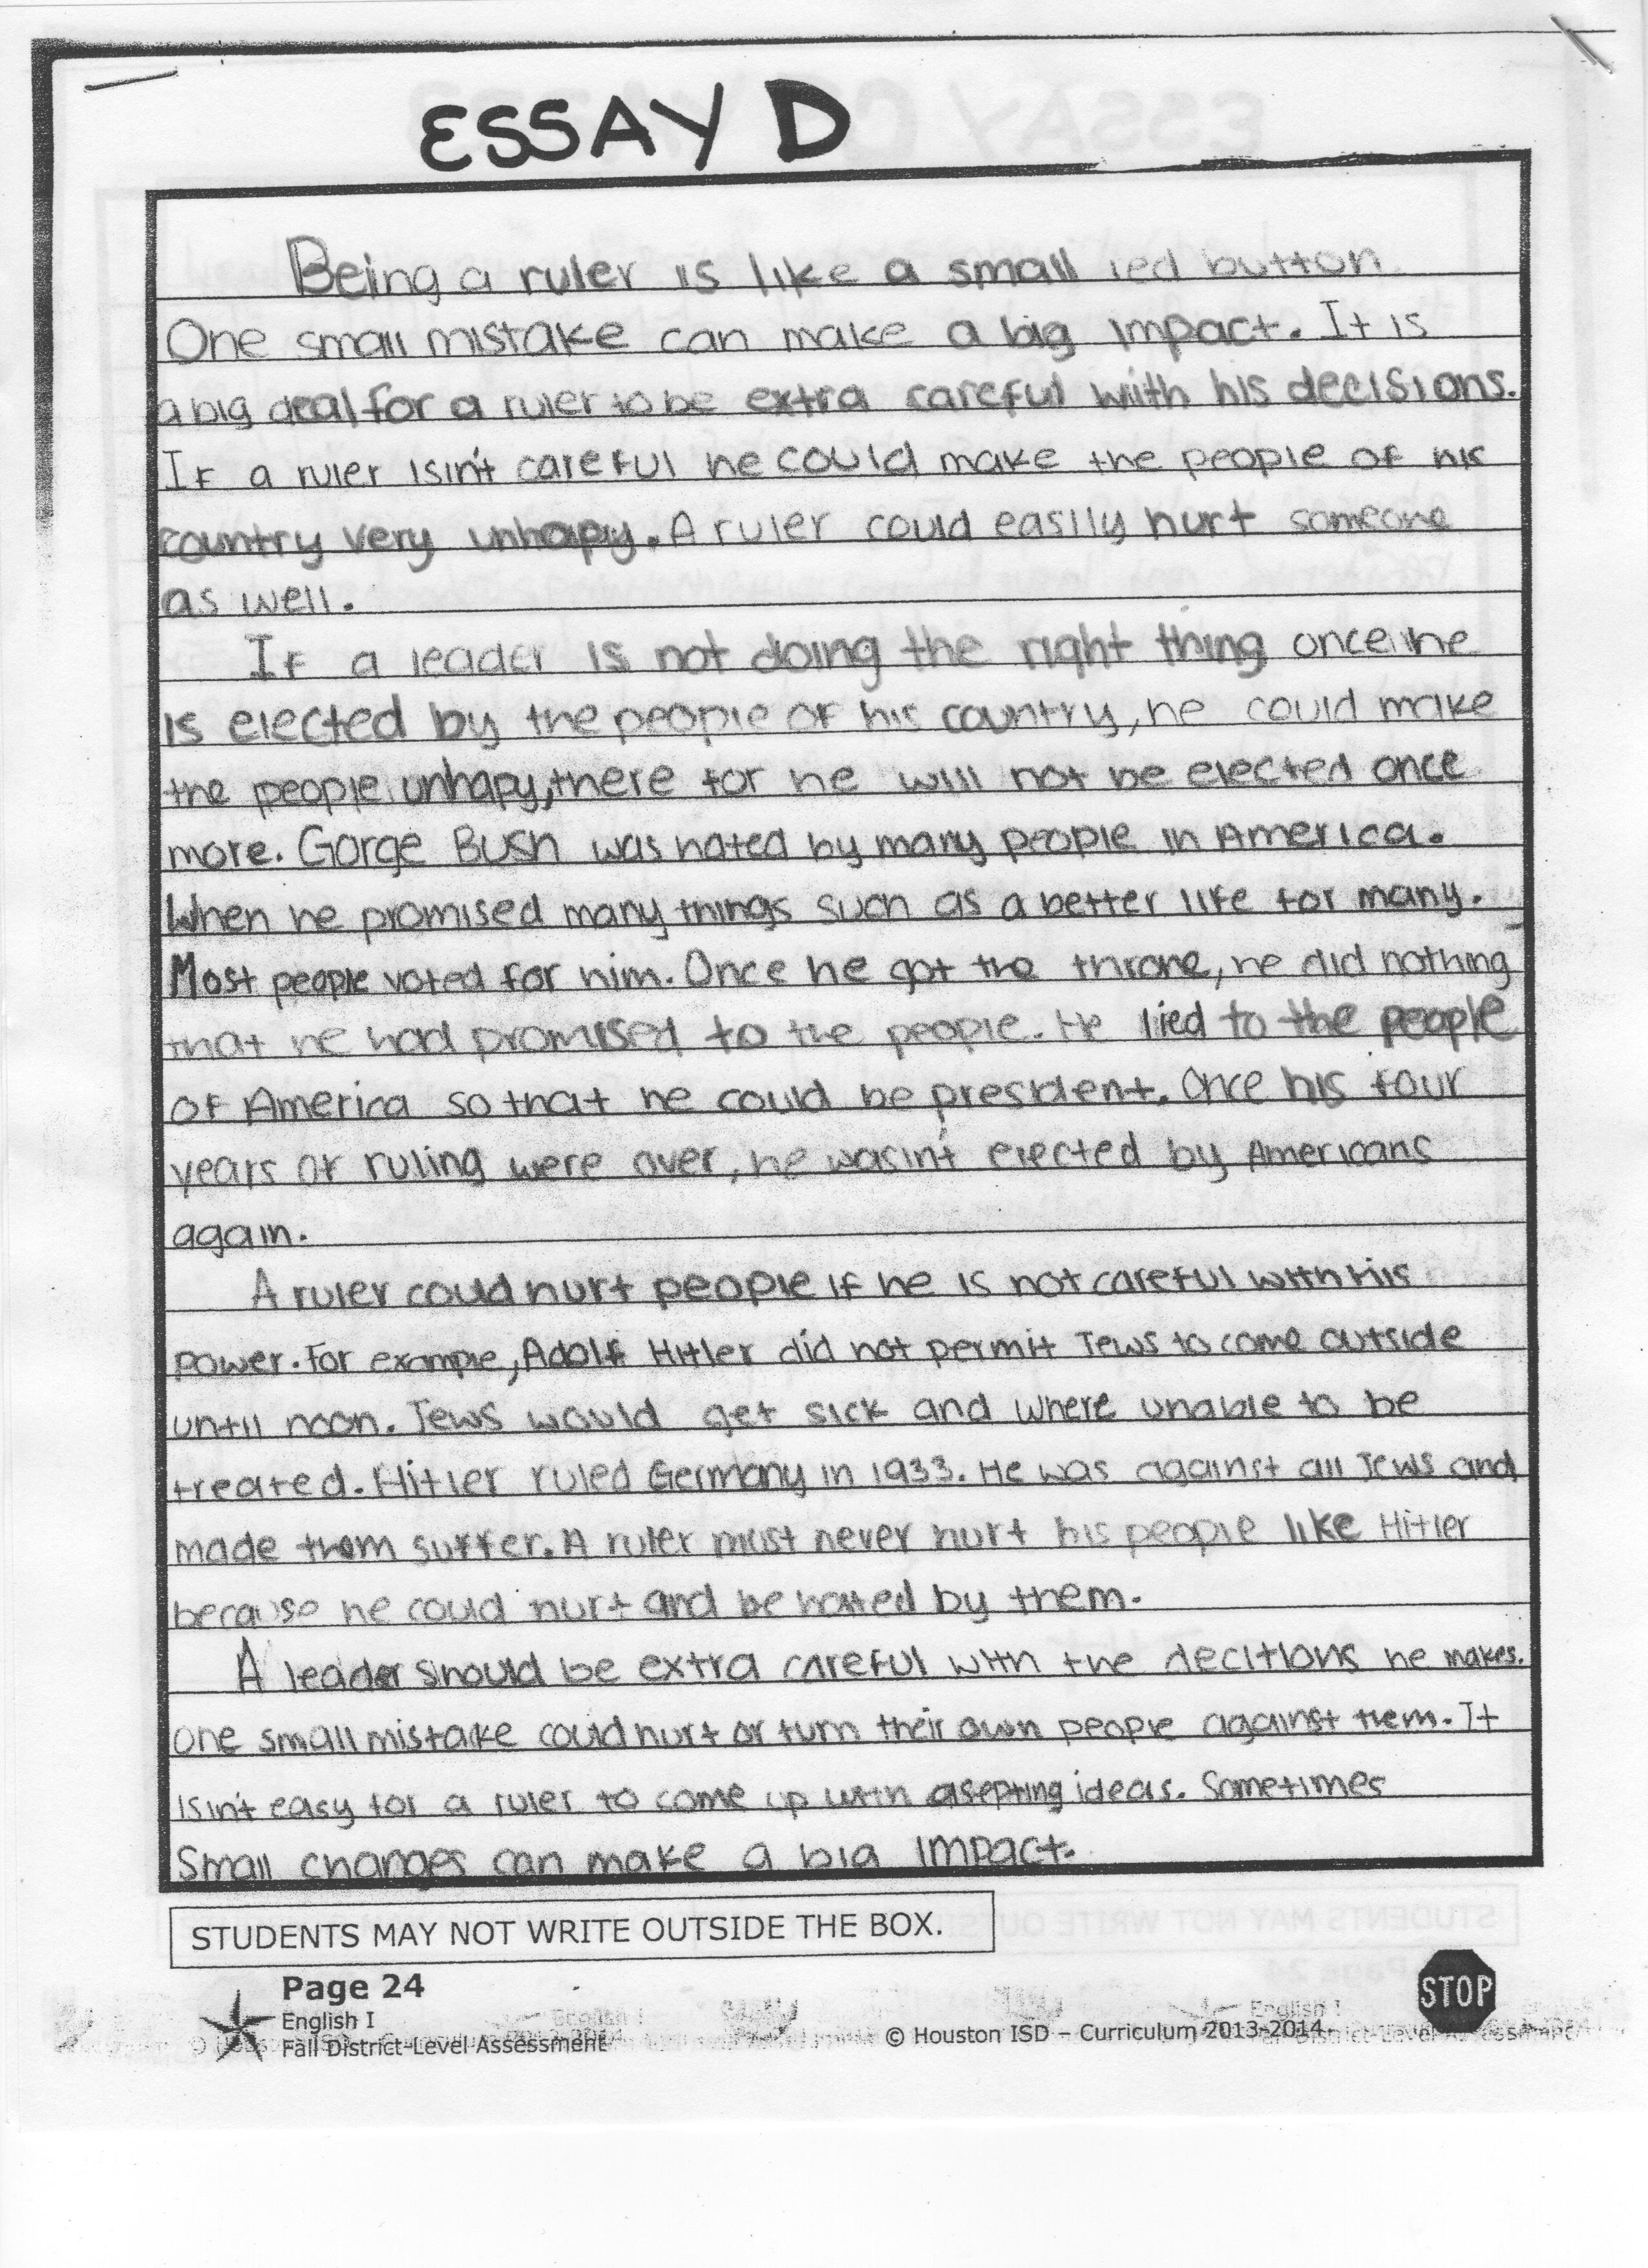 ESSAY D
Being a ruler is like a small red button.
One small mistake can make a big impact. It is
a big deal for a ruler to be extra careful with his decisions.
If a ruler isin't careful he could make the people of his
country very unhapy. A ruler could easily hurt someone
as well.
If a leader is not doing the right thing once he
is elected by the people of his country, he could make
the people unhapy, there for he will not be elected once
more. Gorge Bush was hated by many people in America.
When he promised many things such as a better life for many.
Most people voted for him. Once he got the throne, he did nothing
that he had promised to the people. He lied to the people
of America so that he could be president. Once his four
years of ruling were over, he wasin't elected by Americans
again.
A ruler could hurt people if he is not careful with his
power. For example, Adolf Hitler did not permit Jews to come outside
until noon. Jews would get sick and where unable to be
treated. Hitler ruled Germany in 1933. He was against all Jews and
made them suffer. A ruler must never hurt his people like Hitler
because he could hurt and be hated by them.
A leader should be extra careful with the decitions he makes.
one small mistake could hurt or turn their own people against them. It
isin't easy for a ruler to come up with asepting ideas. Sometimes
Small changes can make a big impact.
STUDENTS MAY NOT WRITE OUTSIDE THE BOX.
Page 24
English I
Fall District-Level Assessment
© Houston ISD – Curriculum 2013-2014
STOP